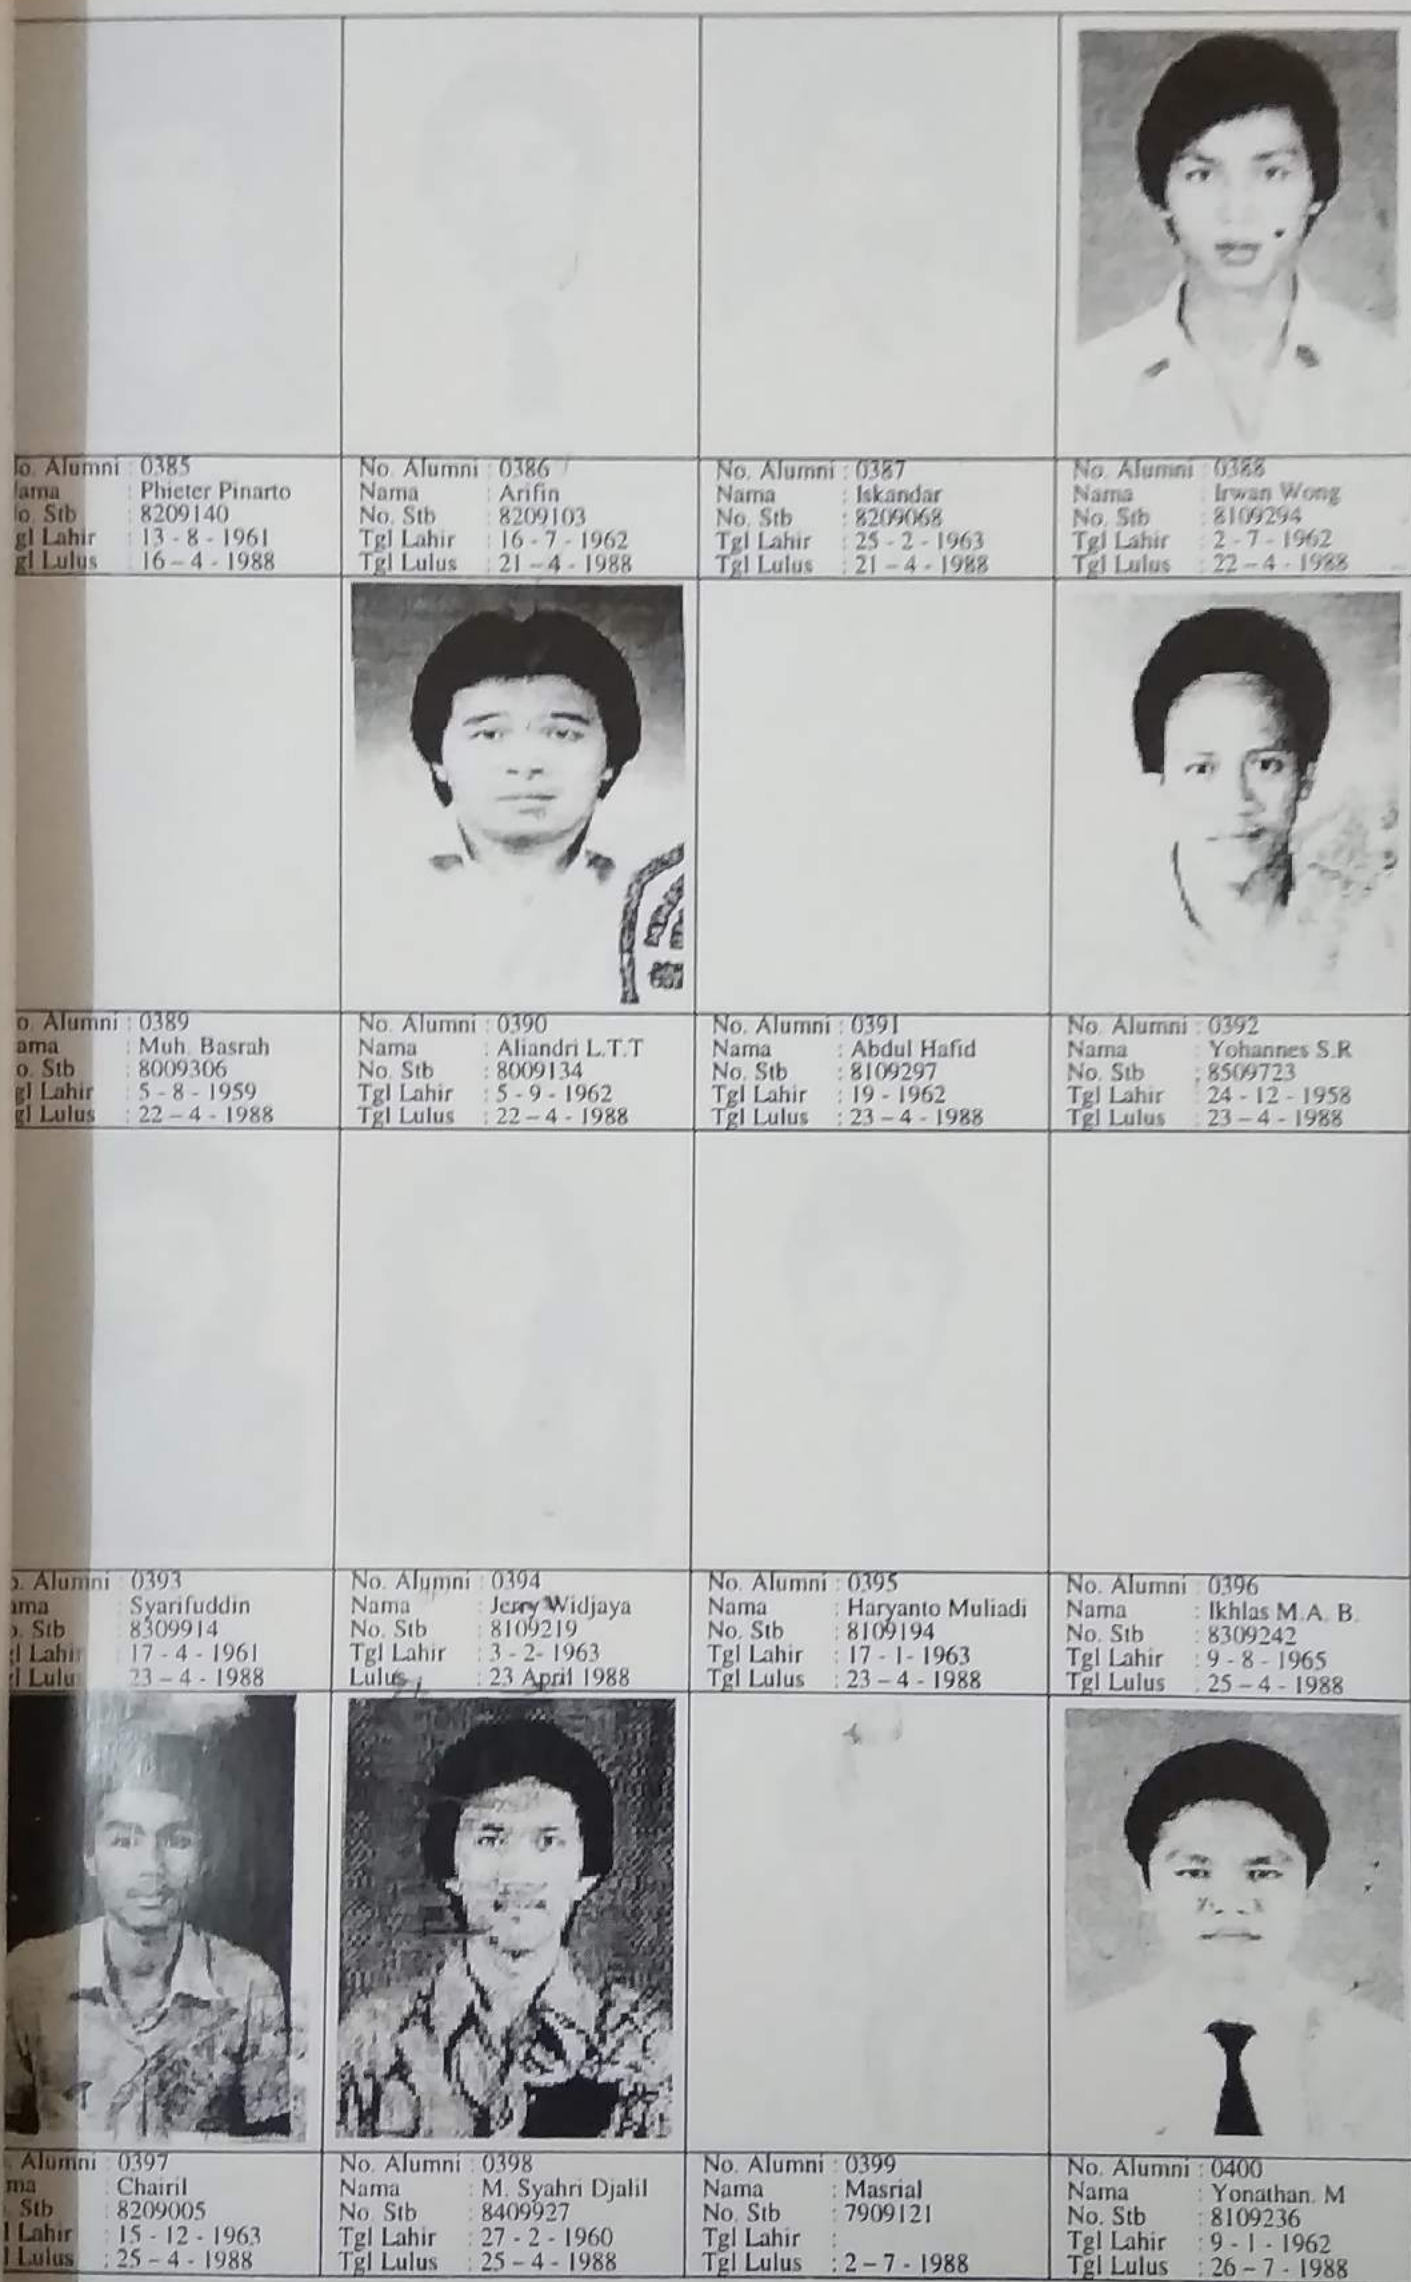 o. Alumni : 0385
ama : Phieter Pinarto
o. Stb : 8209140
gl Lahir : 13 - 8 - 1961
gl Lulus : 16 – 4 - 1988
No. Alumni : 0386
Nama : Arifin
No. Stb : 8209103
Tgl Lahir : 16 - 7 - 1962
Tgl Lulus : 21 – 4 - 1988
No. Alumni : 0387
Nama : Iskandar
No. Stb : 8209068
Tgl Lahir : 25 - 2 - 1963
Tgl Lulus : 21 – 4 - 1988
No. Alumni : 0388
Nama : Irwan Wong
No. Stb : 8109294
Tgl Lahir : 2 - 7 - 1962
Tgl Lulus : 22 – 4 - 1988
o. Alumni : 0389
ama : Muh. Basrah
o. Stb : 8009306
gl Lahir : 5 - 8 - 1959
gl Lulus : 22 – 4 - 1988
No. Alumni : 0390
Nama : Aliandri L.T.T
No. Stb : 8009134
Tgl Lahir : 5 - 9 - 1962
Tgl Lulus : 22 – 4 - 1988
No. Alumni : 0391
Nama : Abdul Hafid
No. Stb : 8109297
Tgl Lahir : 19 - 1962
Tgl Lulus : 23 – 4 - 1988
No. Alumni : 0392
Nama : Yohannes S.R
No. Stb : 8509723
Tgl Lahir : 24 - 12 - 1958
Tgl Lulus : 23 – 4 - 1988
o. Alumni : 0393
ama : Syarifuddin
o. Stb : 8309914
l Lahir : 17 - 4 - 1961
l Lulus : 23 – 4 - 1988
No. Alumni : 0394
Nama : Jerry Widjaya
No. Stb : 8109219
Tgl Lahir : 3 - 2- 1963
Lulus : 23 April 1988
No. Alumni : 0395
Nama : Haryanto Muliadi
No. Stb : 8109194
Tgl Lahir : 17 - 1- 1963
Tgl Lulus : 23 – 4 - 1988
No. Alumni : 0396
Nama : Ikhlas M.A. B.
No. Stb : 8309242
Tgl Lahir : 9 - 8 - 1965
Tgl Lulus : 25 – 4 - 1988
. Alumni : 0397
ma : Chairil
. Stb : 8209005
l Lahir : 15 - 12 - 1963
l Lulus : 25 – 4 - 1988
No. Alumni : 0398
Nama : M. Syahri Djalil
No. Stb : 8409927
Tgl Lahir : 27 - 2 - 1960
Tgl Lulus : 25 – 4 - 1988
No. Alumni : 0399
Nama : Masrial
No. Stb : 7909121
Tgl Lahir :
Tgl Lulus : 2 – 7 - 1988
No. Alumni : 0400
Nama : Yonathan. M
No. Stb : 8109236
Tgl Lahir : 9 - 1 - 1962
Tgl Lulus : 26 – 7 - 1988